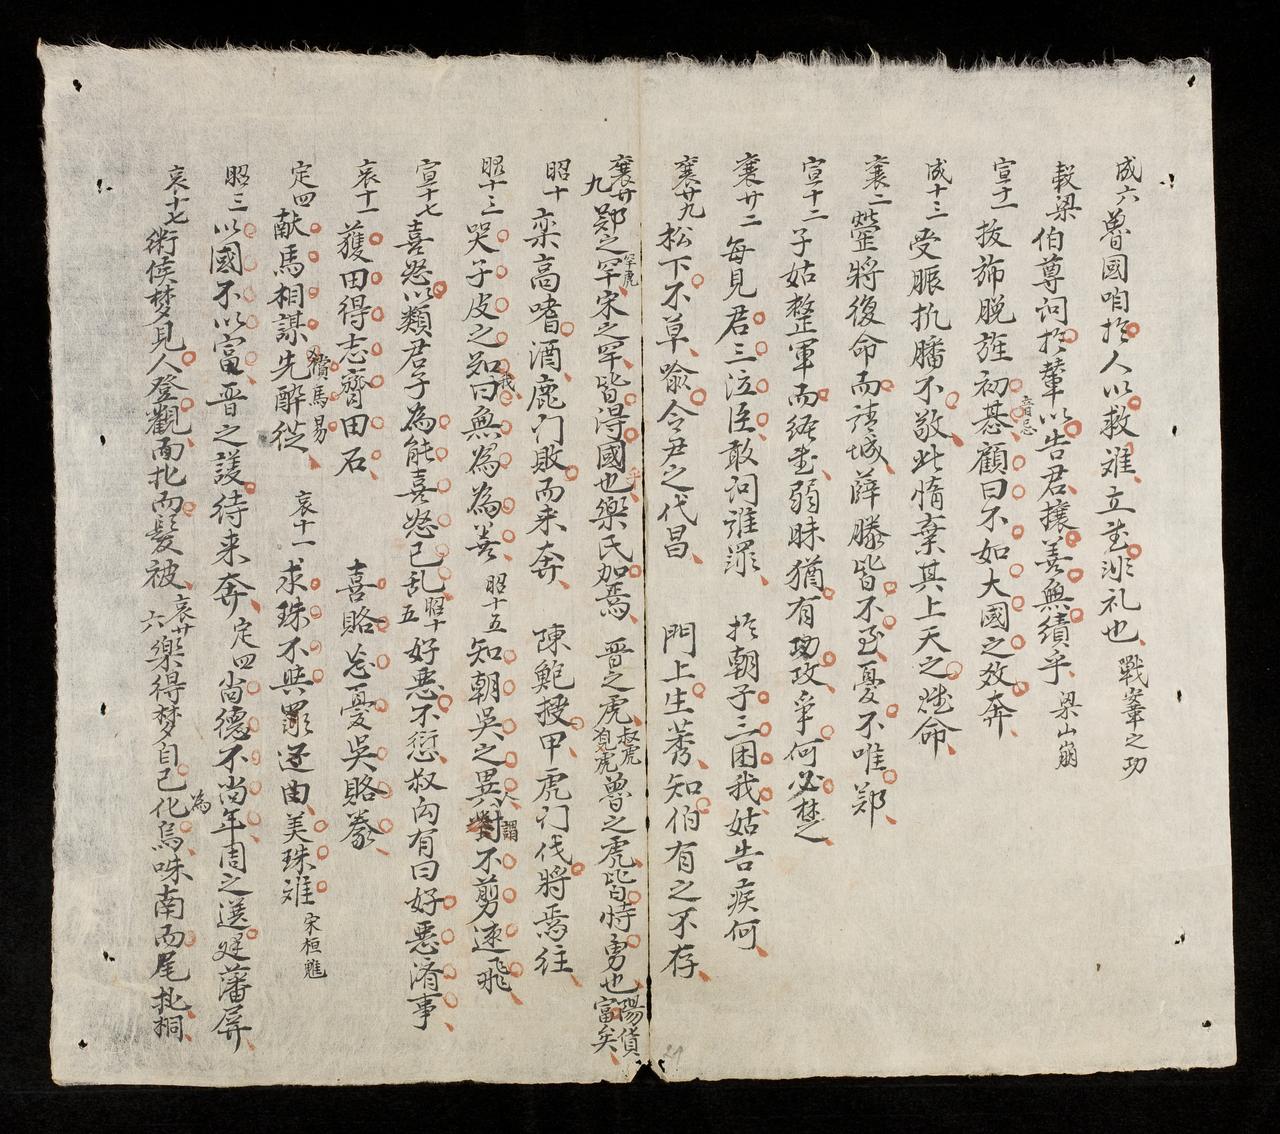 成六魯國咱扵人以救难立武非礼也戰鞌之功
穀梁伯尊问扵輦以告君攘善無績乎梁山崩
宣十二拔斾脱𨊻初惎音忌顧曰不如大國之数奔
成十三受脤执膰不敬此惰棄其上天之㷉命
襄二罃將復命而請城薛滕皆不至憂不唯鄭
宣十二子姑整軍而経武弱昧猶有功攻爭何必楚
襄廿二每見君三泣臣敢问誰罪扵朝子三困我姑告疾何
襄廿九松下不草喻令尹之代昌門上生莠知伯有之不存
襄廿九鄭之罕罕虎宋之罕皆得國也乎樂氏加焉晋之虎叔虎魯之虎皆恃勇也陽貨富矣
昭十栾高嗜酒鹿门敗而来奔陳鮑授甲虎门伐將焉往
昭十三哭子皮之知我曰無為為善昭十五知朝吳之異人謂對不剪速飛
宣十七喜怒以類君子為能喜怒已乱昭十五好悪不愆叔向有曰好悪済事
哀十一獲田得志齊田石喜賂忘憂吳賂豢
定四献馬相謀先酔從竊馬易哀十一求珠不與罪逐由美珠难宋桓魋
昭三以國不以富晋之護待来奔定四尚德不尚年周之選建藩屏
哀十七衛侯梦見人登觀面北而髪被哀廿六樂得梦自己化為烏咮南而尾北桐